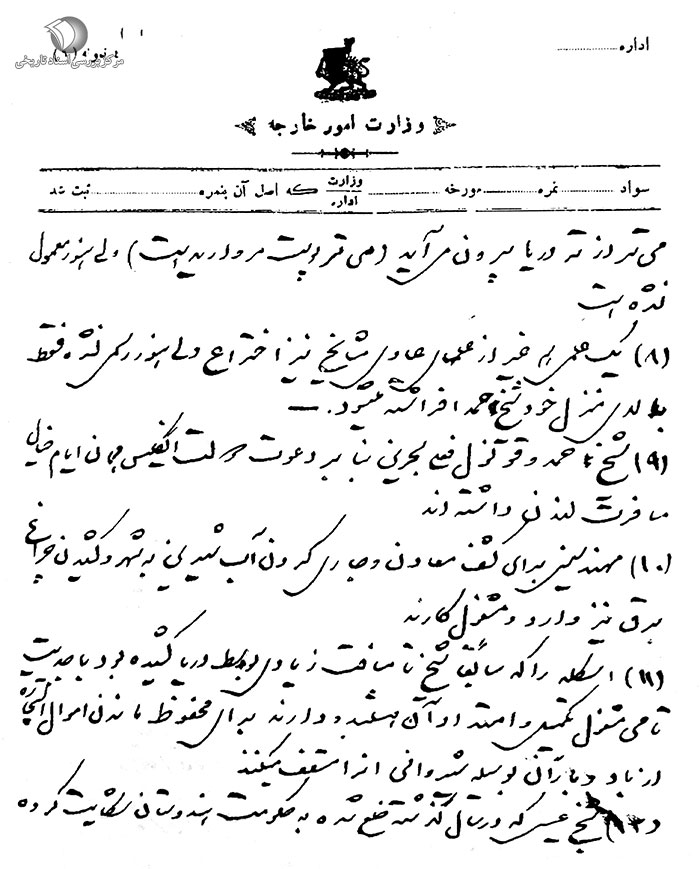 مرکز بررسی اسناد تاریخی
اداره
وزارت امور خارجه
سواد نمره مورخه وزارت اداره که اصل آن بنمره ثبت شد
از ته دریا بیرون می‌آید ( مروارید است ) ولی هنوز معمول
نشده است
(۸) یک علمی غیر از علمهای عادی مشایخ نیز اختراع ولی هنوز رسمی نشده فقط
بالای منزل خود شیخ حمد افراشته میشود . —
(۹) شیخ حمد و قونسول فعلی بحرین بنا بر دعوت دولت انگلیس در این ایام خیال
مسافرت لندن داشته اند
(۱۰) مهندسینی برای کشف معادن و جاری کردن آب شیرین به شهر و کشیدن چراغ
برق نیز وارد و مشغول کارند
(۱۱) اسکله را که سابقا شیخ تا مسافت زیادی بوسط دریا کشیده بود با جدیت
تامی مشغول تکمیل و امتداد آن هستند و دارند برای محفوظ ماندن اموال التجاره
از باد و باران بوسیله شیروانی انرا مسقف میکنند
(۱۲) شیخ عیسی که در سال گذشته خلع شده به حکومت هندوستان شکایت کرده